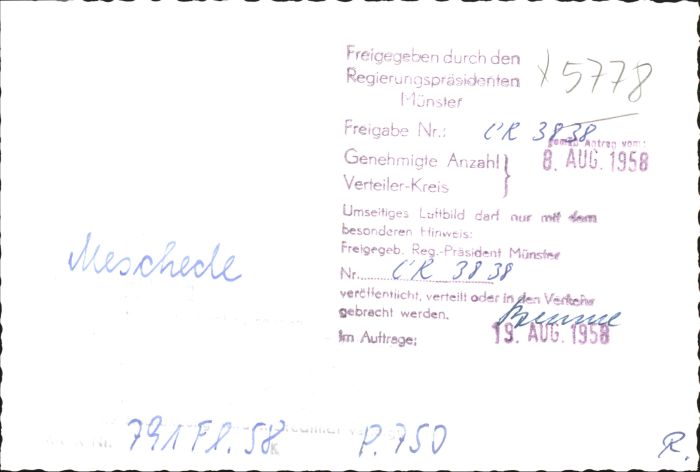 Freigegeben durch den
Regierungspräsidenten
Münster
5778
Freigabe Nr.: CR 3838
gemäß Antrag vom:
8. AUG. 1958
Genehmigte Anzahl
Verteiler-Kreis
Umseitiges Luftbild darf nur mit dem
besonderen Hinweis:
Freigegeb. Reg.-Präsident Münster
Nr. CR 3838
veröffentlicht, verteilt oder in den Verkehr
gebracht werden.
19. AUG. 1958
Im Auftrage:
Meschede
791 Fl. 58 P. 750
R.